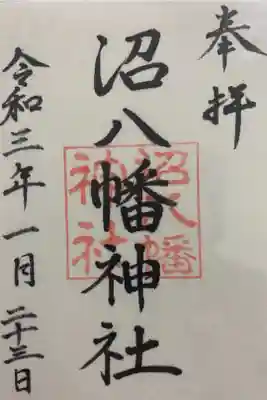 奉拝
沼八幡神社
沼八幡神社
令和三年一月二十三日